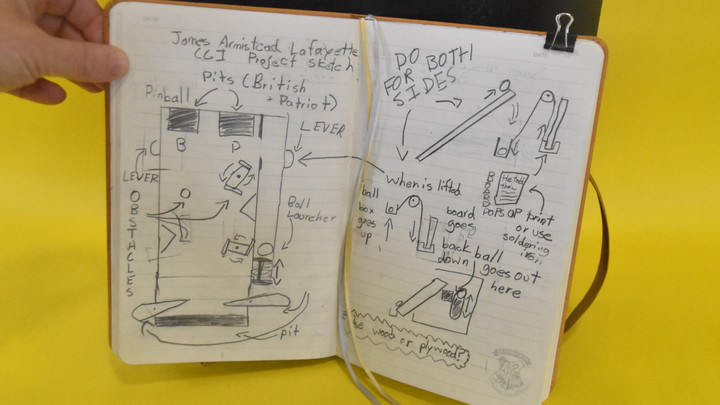 James Armistead Lafayette
CGI Project sketch
Pits (British
+ Patriot)
Pinball
LEVER
B
P
LEVER
OBSTACLES
Ball
Launcher
pit
DO BOTH
FOR
SIDES
When is lifted
ball
box
goes
up
board
goes
back
down
ball
goes out
here
BOARD
POPS UP
print
or use
soldering
iron
wood or plywood?